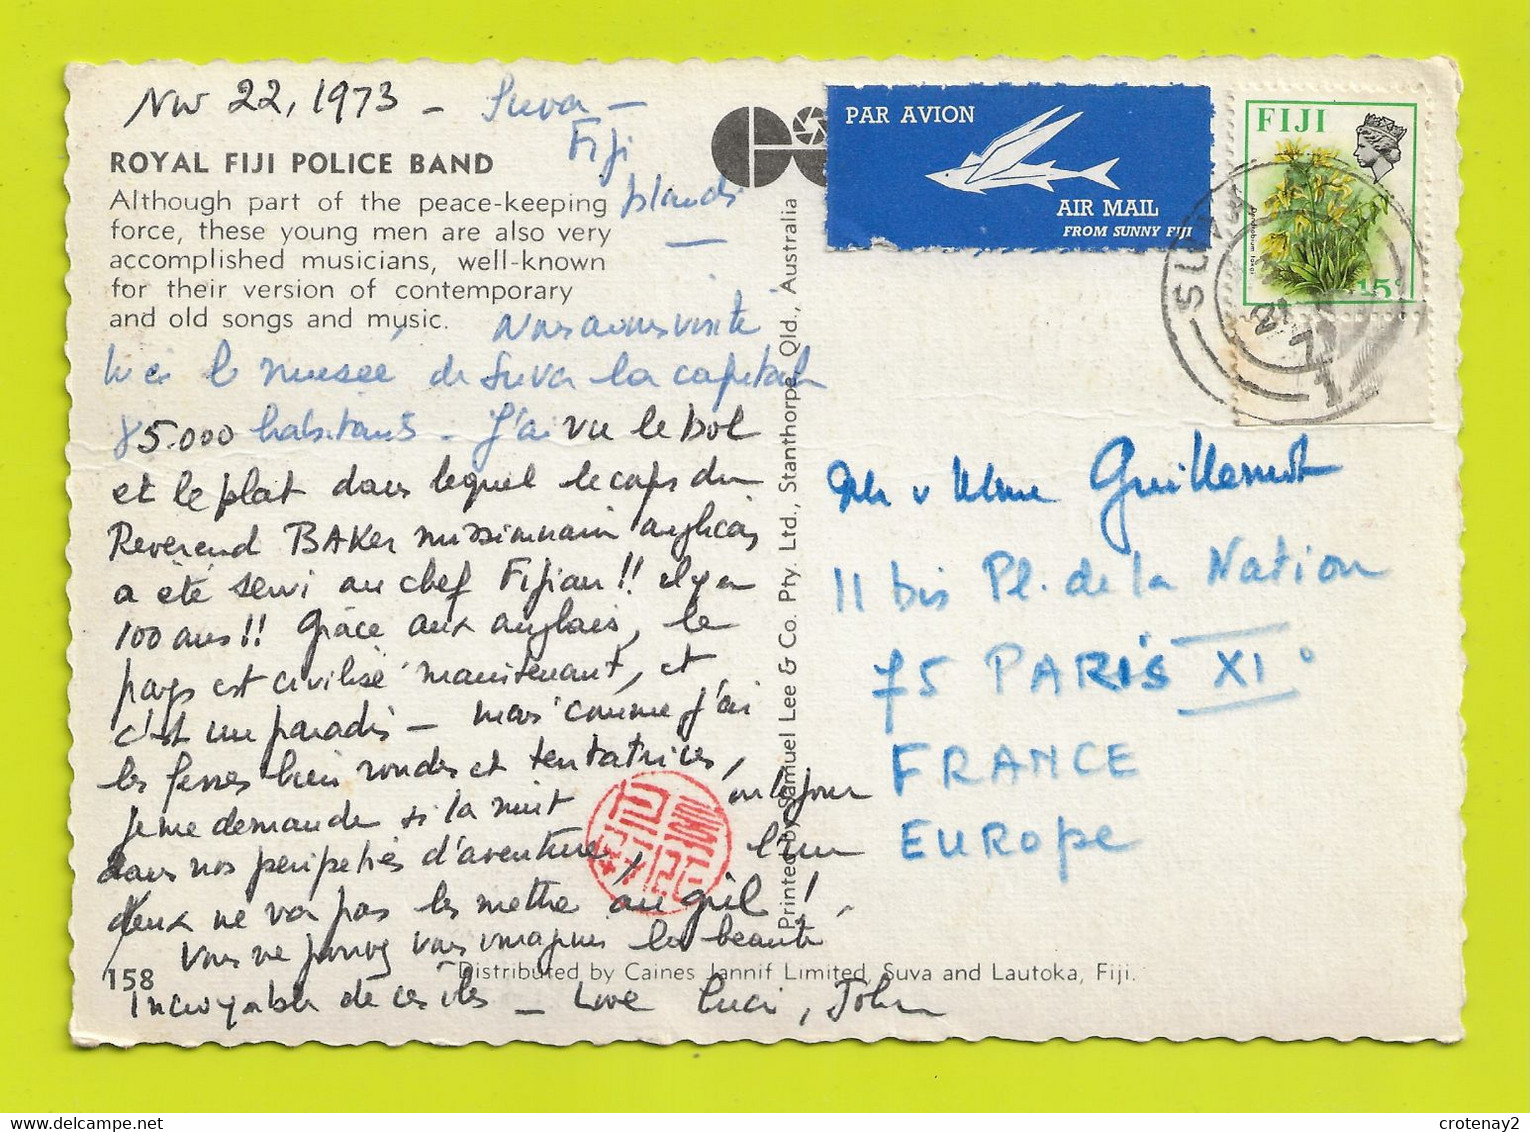 Nov 22, 1973 - Suva -
Fiji
Islands
ROYAL FIJI POLICE BAND
Although part of the peace-keeping
force, these young men are also very
accomplished musicians, well-known
for their version of contemporary
and old songs and music.
Nous avons visité
hier le musée de Suva la capitale
85.000 habitants - J'ai vu le bol
et le plat dans lequel le corps du
Reverend BAKER missionnaire anglican
a été servi au chef Fijian!! il y a
100 ans!! Grâce aux anglais, le
pays est civilisé maintenant, et
c'est un paradis - mais comme j'ai
les fesses bien rondes et tentatrices,
je me demande si la nuit ou le jour
dans nos péripéties d'aventure, l'un
d'eux ne va pas les mettre au gril!
Vous ne pouvez vous imaginer la beauté
incroyable de ces îles - Love Luci, John
158
Distributed by Caines Jannif Limited, Suva and Lautoka, Fiji.
Printed by Samuel Lee & Co. Pty. Ltd., Stanthorpe, Qld., Australia
PAR AVION
AIR MAIL
FROM SUNNY FIJI
FIJI
Dendrobium tokai
15c
SUVA
1
Guillemot
11 bis Pl. de la Nation
75 PARIS XI°
FRANCE
EUROPE
crotenay2